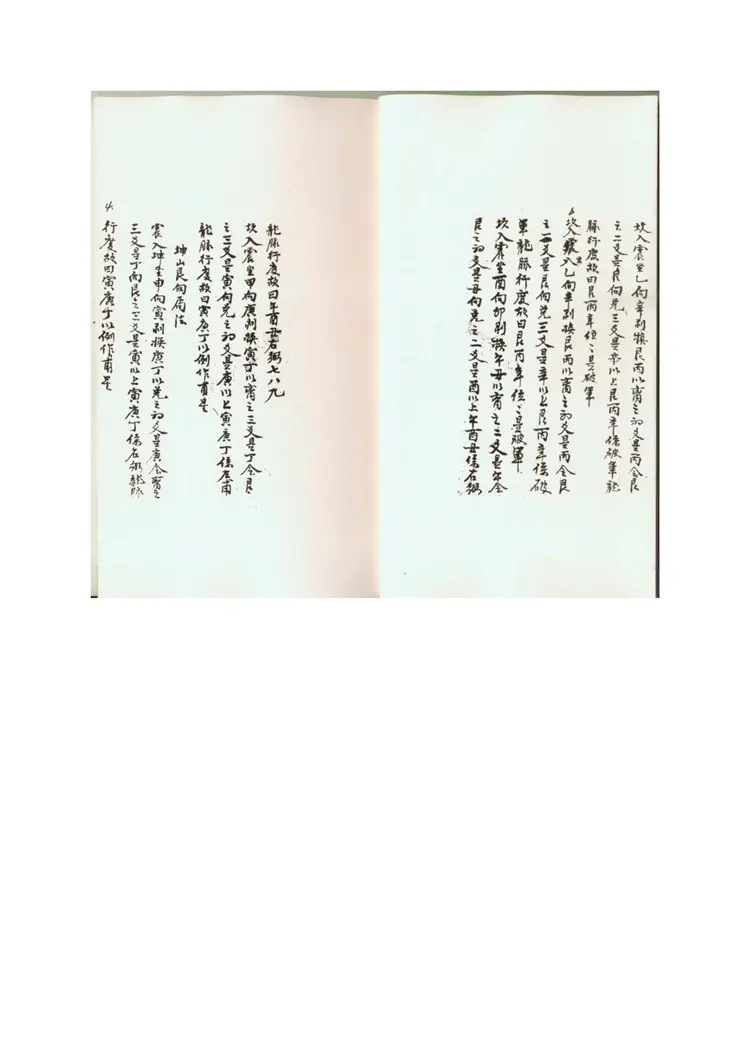 坎入震坐乙向辛剥換艮丙以甯之初爻是丙令艮
之二爻是艮向兑三爻是辛以上艮丙辛係破軍龍
脉行度故曰艮丙辛位〻是破軍
坎入巽坐乙向辛剥換艮丙以甯之初爻是丙令艮
之二爻是艮向兑三爻是辛以上艮丙辛係破
軍龍脉行度故曰艮丙辛位〻是破軍
坎入震坐酉向卯剥換午丑以甯之二爻是午令
艮之初爻是丑向兑之二爻是酉以上午酉丑係右弼
龍脉行度故曰午酉丑右弼七八九
坎入震坐甲向庚剥換寅丁以甯之三爻是丁令艮
之三爻是寅向兑之初爻是庚以上寅庚丁係左甫
龍脉行度故曰寅庚丁以例作甫星
坤山艮向局法
震入坤坐申向寅剥換庚丁以兑之初爻是庚令甯之
三爻是丁向艮之三爻是寅以上寅庚丁係右弼龍脉
行度故曰寅庚丁以例作甫星